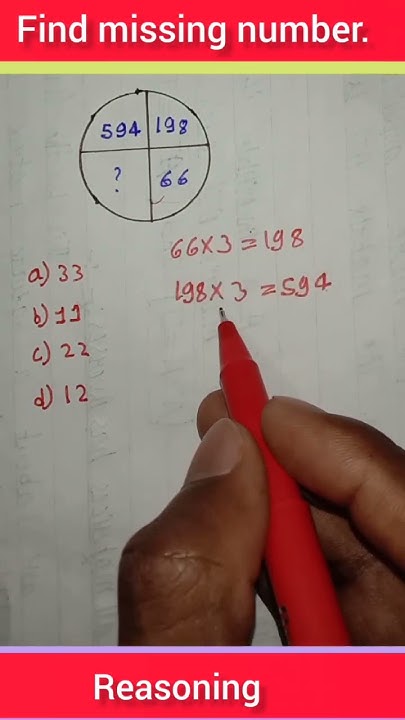 Find missing number.
594 198
? 66
66×3=198
198×3=594
a) 33
b) 11
c) 22
d) 12
Reasoning